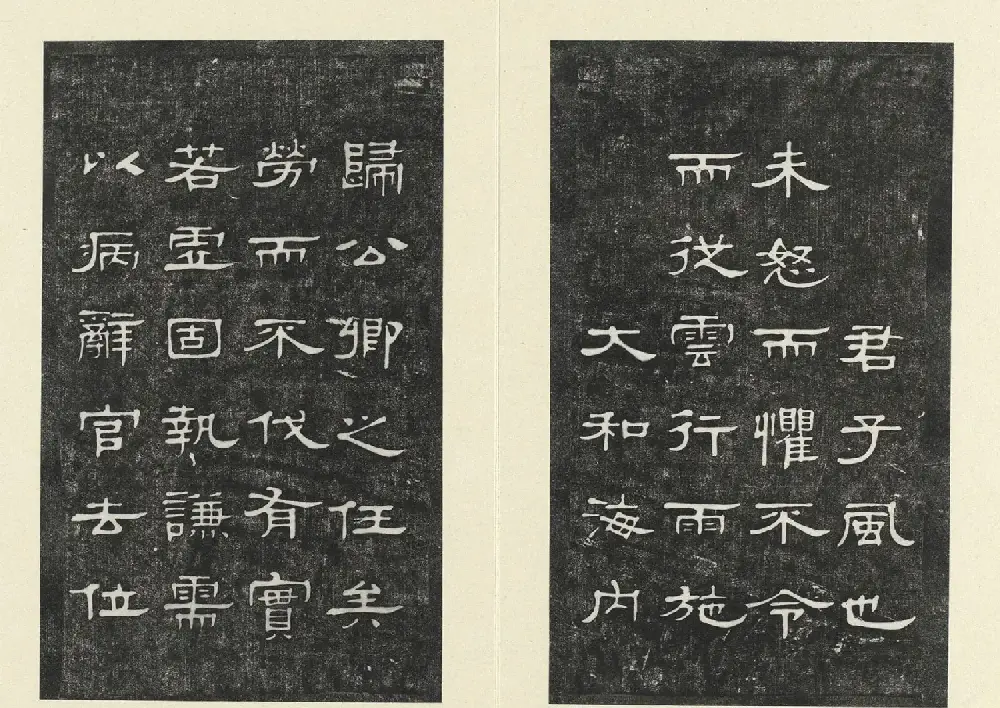 君子風也
未怒而懼不令
而從雲行雨施
大和海內
歸公卿之任矣
勞而不伐有實
若虛固執謙需
以病辭官去位